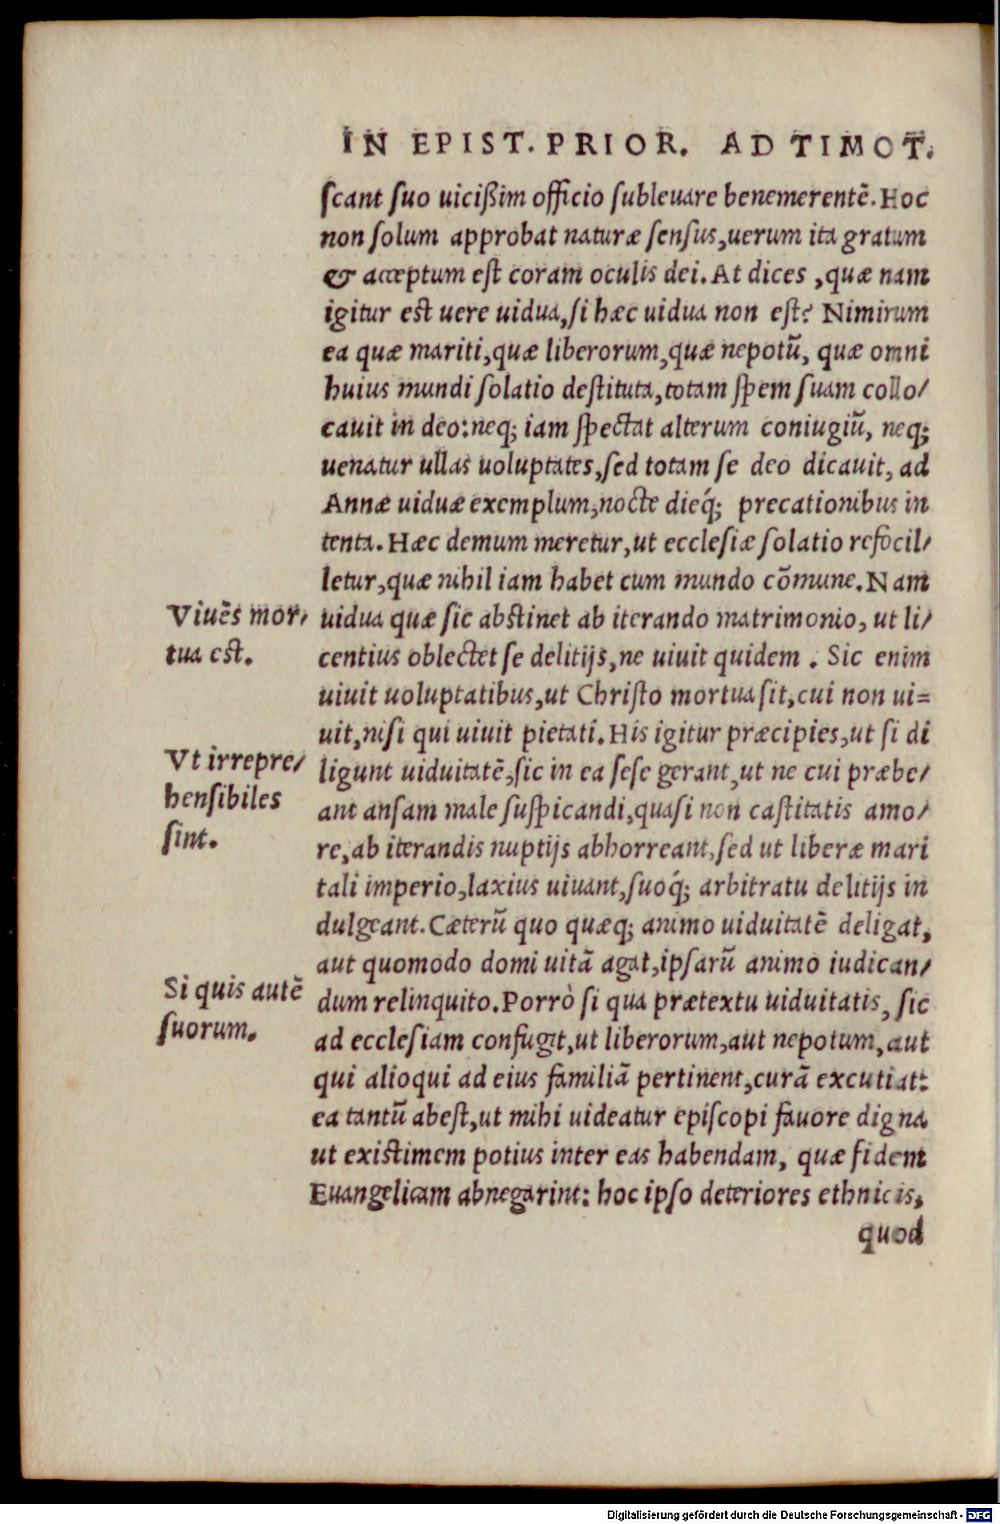 IN EPIST. PRIOR. AD TIMOT.
ſcant ſuo uicißim officio ſubleuare benemerentẽ. Hoc
non ſolum approbat naturæ ſenſus, uerum ita gratum
& acceptum eſt coram oculis dei. At dices, quæ nam
igitur eſt uere uidua, ſi hæc uidua non eſt? Nimirum
ea quæ mariti, quæ liberorum, quæ nepotũ, quæ omni
huius mundi ſolatio deſtituta, totam ſpem ſuam collo/
cauit in deo: neq; iam ſpectat alterum coniugiũ, neq;
uenatur ullas uoluptates, ſed totam ſe deo dicauit, ad
Annæ uiduæ exemplum, nocte dieq́; precationibus in
tenta. Hæc demum meretur, ut eccleſiæ ſolatio refocil/
letur, quæ nihil iam habet cum mundo cõmune. Nam
Viuẽs mor/
tua eſt.
uidua quæ ſic abſtinet ab iterando matrimonio, ut li/
centius oblectet ſe delitijs, ne uiuit quidem. Sic enim
uiuit uoluptatibus, ut Chriſto mortua ſit, cui non ui=
uit, niſi qui uiuit pietati. His igitur præcipies, ut ſi di
Vt irrepre/
henſibiles
ſint.
ligunt uiduitatẽ, ſic in ea ſeſe gerant, ut ne cui præbe/
ant anſam male ſuſpicandi, quaſi non caſtitatis amo/
re, ab iterandis nuptijs abhorreant, ſed ut liberæ mari
tali imperio, laxius uiuant, ſuoq́; arbitratu delitijs in
dulgeant. Cæterũ quo quæq; animo uiduitatẽ deligat,
aut quomodo domi uitã agat, ipſarũ animo iudican/
Si quis autẽ
ſuorum.
dum relinquito. Porrò ſi qua prætextu uiduitatis, ſic
ad eccleſiam confugit, ut liberorum, aut nepotum, aut
qui alioqui ad eius familiã pertinent, curã excutiat:
ea tantũ abeſt, ut mihi uideatur epiſcopi fauore digna
ut exiſtimem potius inter eas habendam, quæ fidem
Euangelicam abnegarint: hoc ipſo deteriores ethnicis,
quod
Digitalisierung gefördert durch die Deutsche Forschungsgemeinschaft - DFG